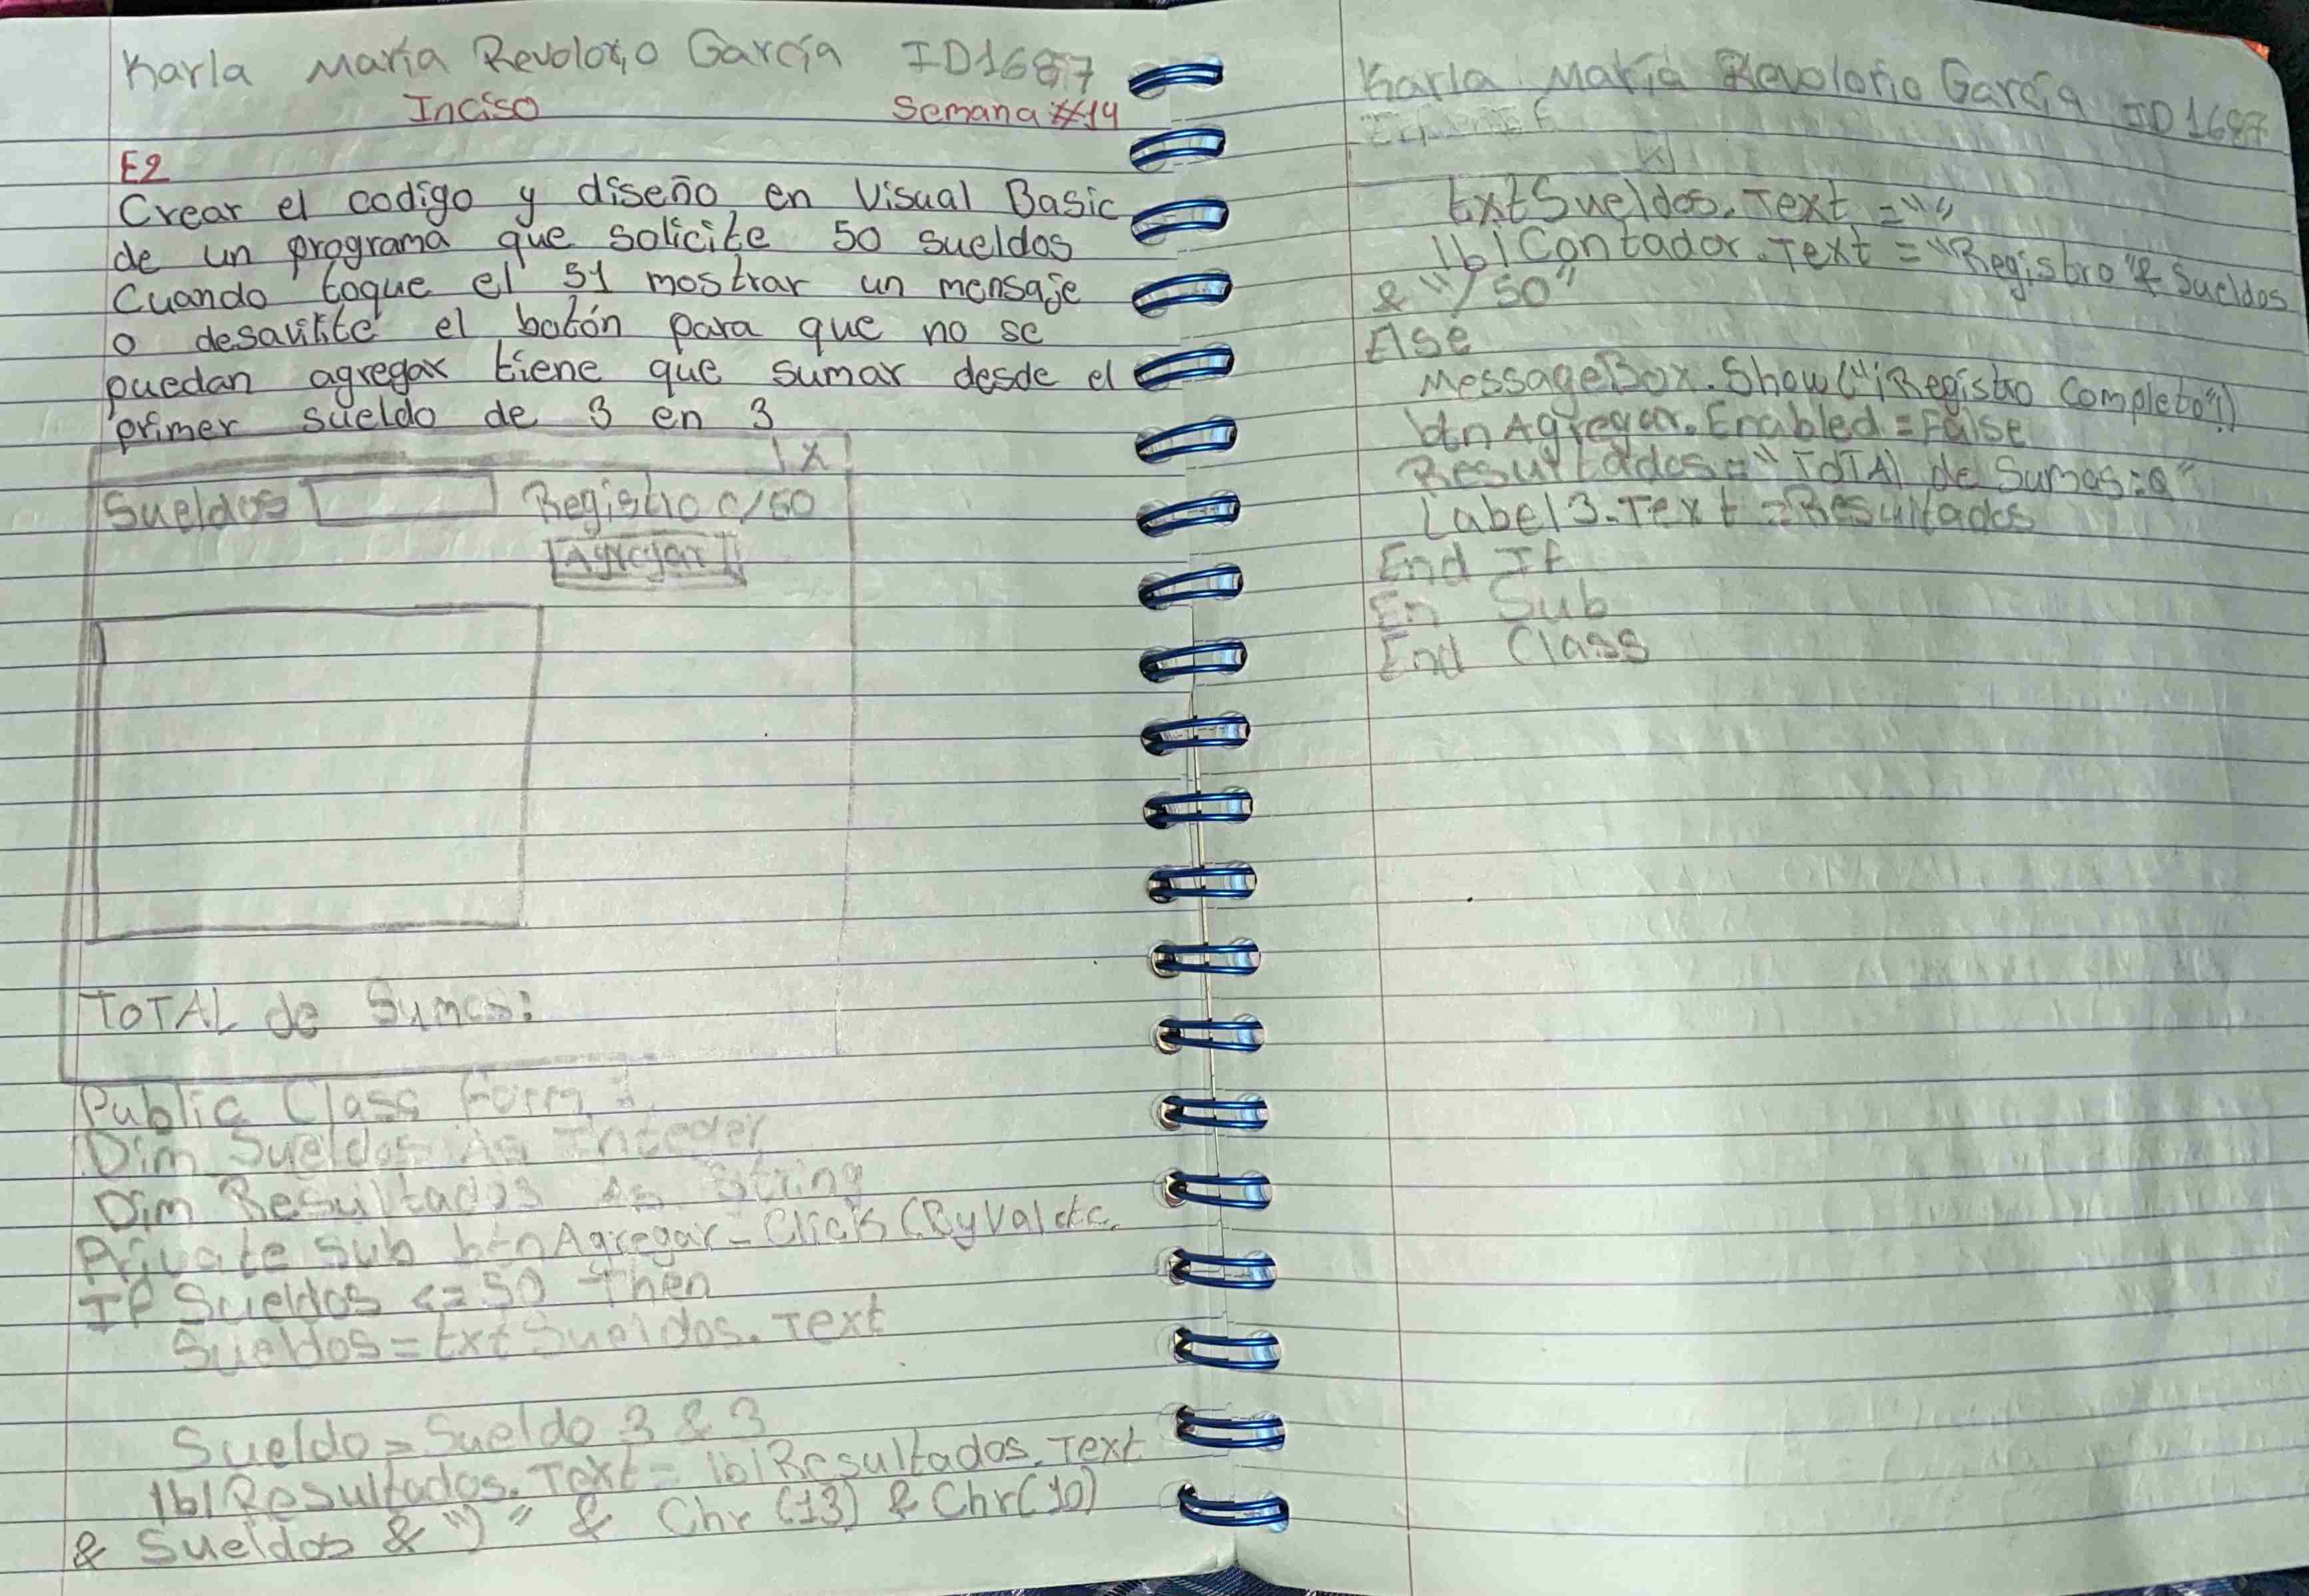 Karla María Revolorio García ID1687
Inciso Semana #14
E2
Crear el codigo y diseño en Visual Basic
de un programa que solicite 50 sueldos
Cuando toque el 51 mostrar un mensaje
o desavilite el botón para que no se
puedan agregar tiene que sumar desde el
primer sueldo de 3 en 3
X
Sueldos Registro 0/50
Agregar
TOTAL de Sumas:
Public Class Form 1
Dim Sueldos As Integer
Dim Resultados As String
Private Sub btnAgregar_Click (ByVal etc.
If Sueldos <= 50 Then
Sueldos = txtSueldos.Text
Sueldo = Sueldo 3 & 3
lblResultados.Text = lblResultados.Text
& Sueldos & ")" & Chr (13) & Chr(10)
Karla María Revolorio García ID1687
txtSueldos.Text = ""
lblContador.Text = "Registro" & Sueldos
& "/50"
Else
MessageBox.Show("¡Registro Completo"!)
btnAgregar.Enabled = False
Resultados = "TOTAl de Sumas:Q"
Label3.Text = Resultados
End If
En Sub
End Class